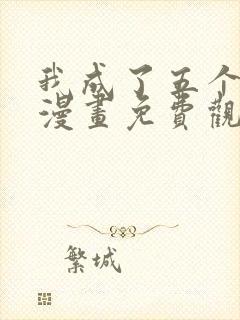 我成了五个
漫畫免費觀
繁城